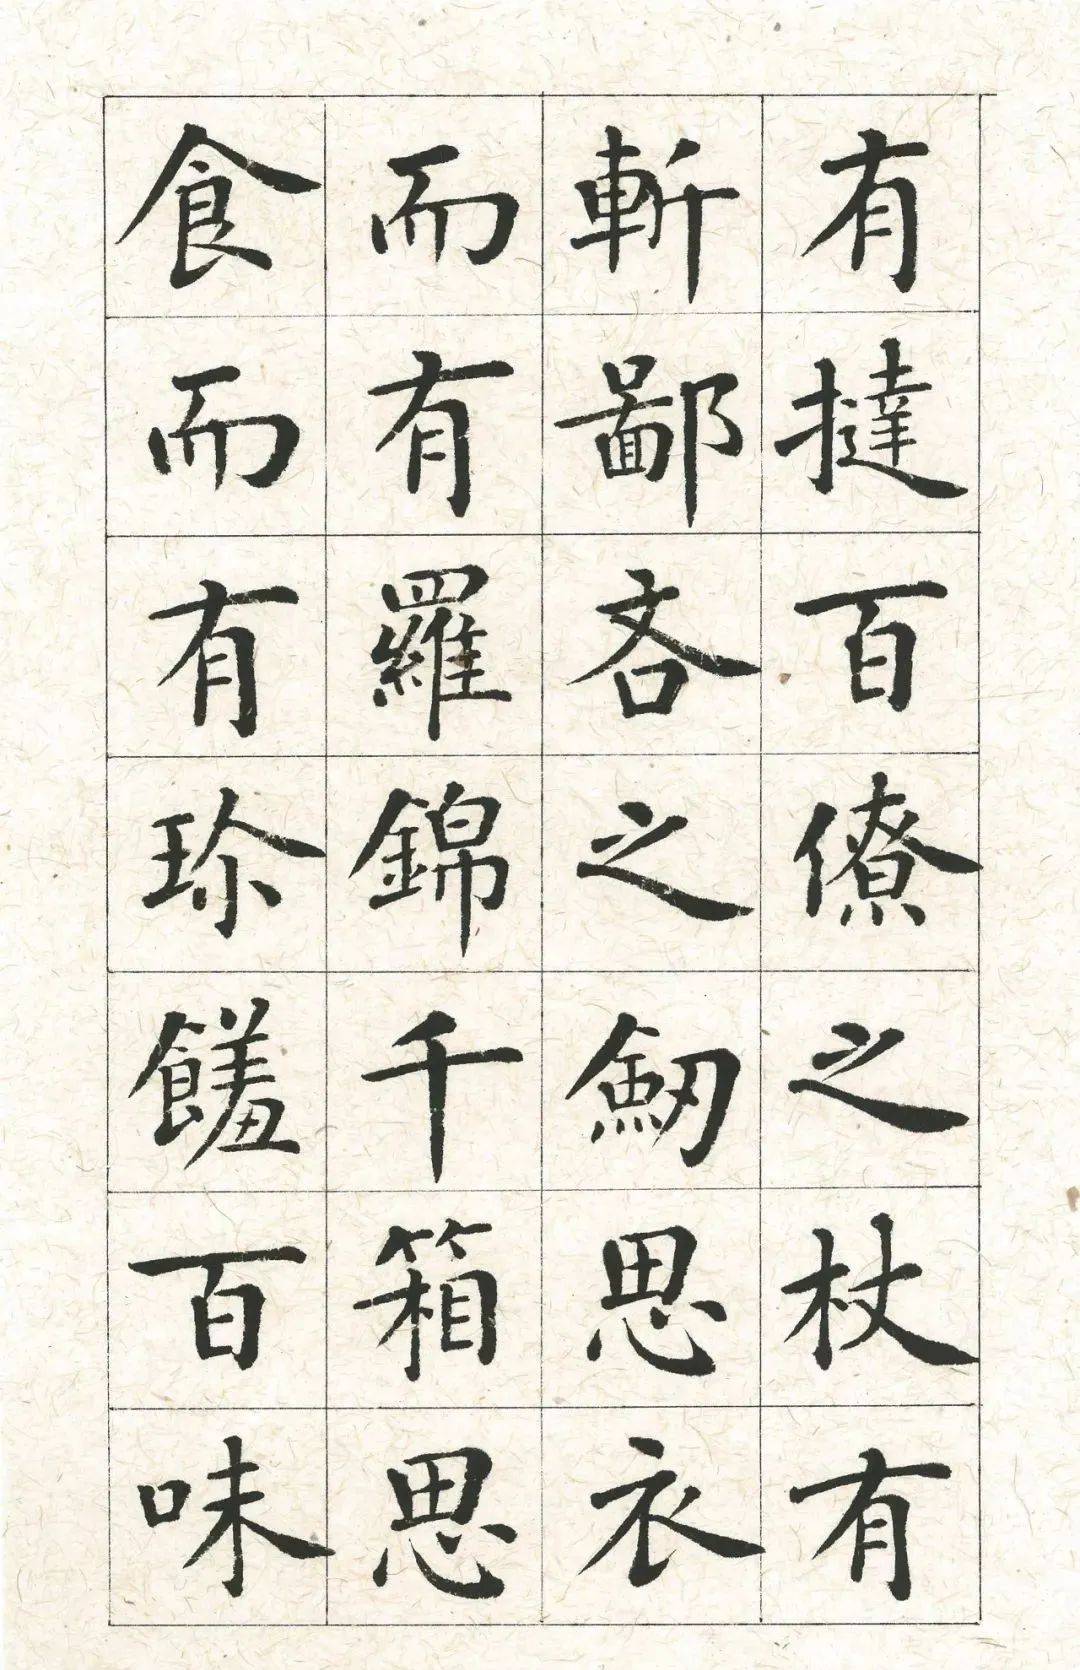 有撻百僚之杖有
斬鄙吝之劒思衣
而有羅錦千箱思
食而有珍饈百味